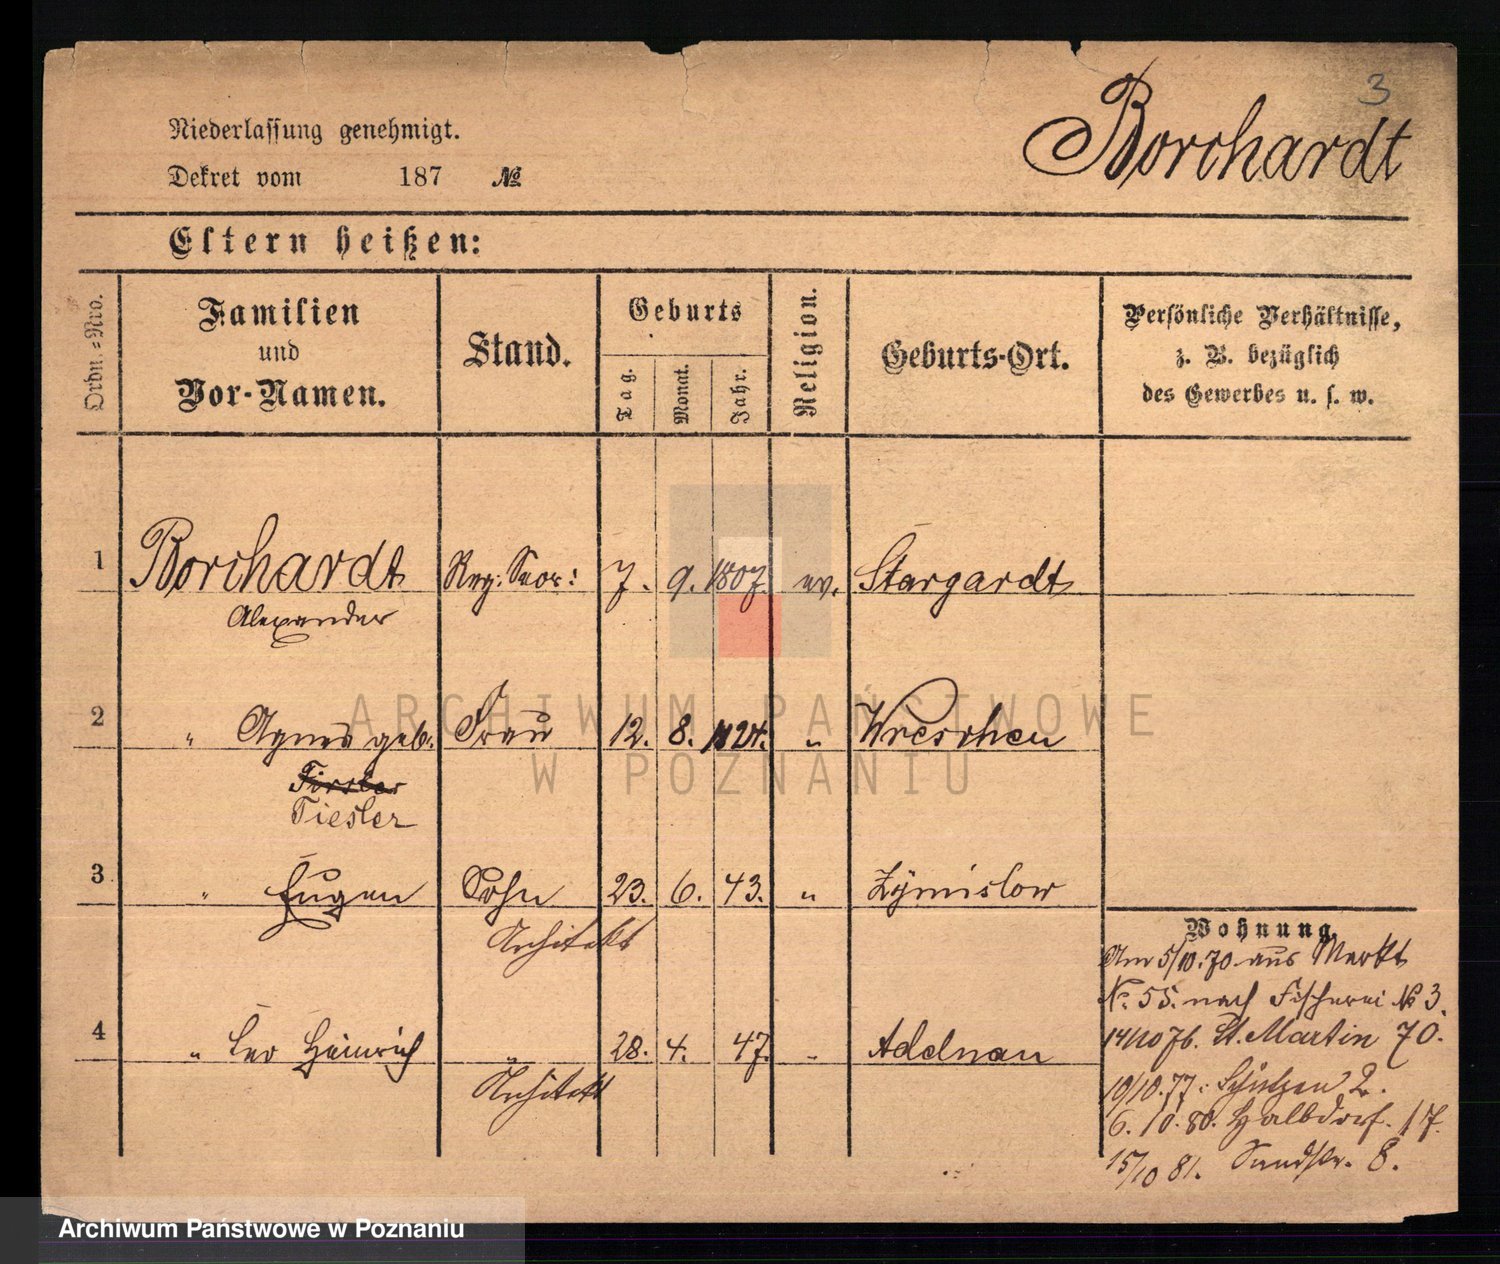 3
Borchardt
Niederlassung genehmigt.
Dekret vom 187 №
Eltern heißen:
Ordn.-Nro.
Familien
und
Vor-Namen.
Stand.
Geburts
Tag.
Monat.
Jahr.
Religion.
Geburts-Ort.
Persönliche Verhältnisse,
z. B. bezüglich
des Gewerbes u. s. w.
1 Borchardt Reg: 7. 9. 1807. ev. Stargardt
Alexander
2 " Agnes geb. Frau 12. 8. 1824. " Wreschen
Tiesler
3 " Eugen Sohn 23. 6. 43. " Zymislow
Architekt
4 " Leo Heinrich " 28. 4. 47. " Adelnau
Architekt
Wohnung.
Am 5/10. 70 aus Markt
№ 55. nach Fischerei № 3.
14/10 76. St. Martin 70.
10/10. 77. Schützen 2.
6. 10. 80. Halbdorf. 17.
15/10 81. Sandstr. 8.
ARCHIWUM PAŃSTWOWE
W POZNANIU
Archiwum Państwowe w Poznaniu